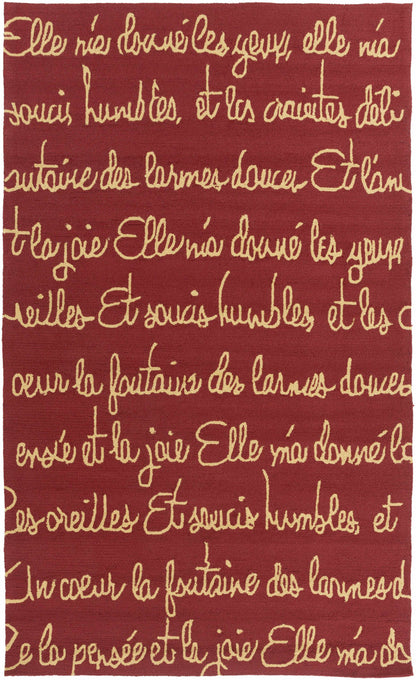 Elle m'a donné les yeux, elle m'a
soucis humbles, et les craintes déli
outaine des larmes douces Et l'am
t la joie Elle m'a donné les yeux
reilles Et soucis humbles, et les c
cœur la foutaine des larmes douces
ensée et la joie Elle m'a donné le
Les oreilles Et soucis humbles, et
Un cœur la foutaine des larmes d
De la pensée et la joie Elle m'a do